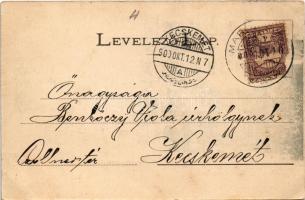 4
LEVELEZ P.
KECSKEMÉT
900 OKT. 12. N 7
A
Őnagysága
Benkóczy Viola úrhölgynek
Kecskemét